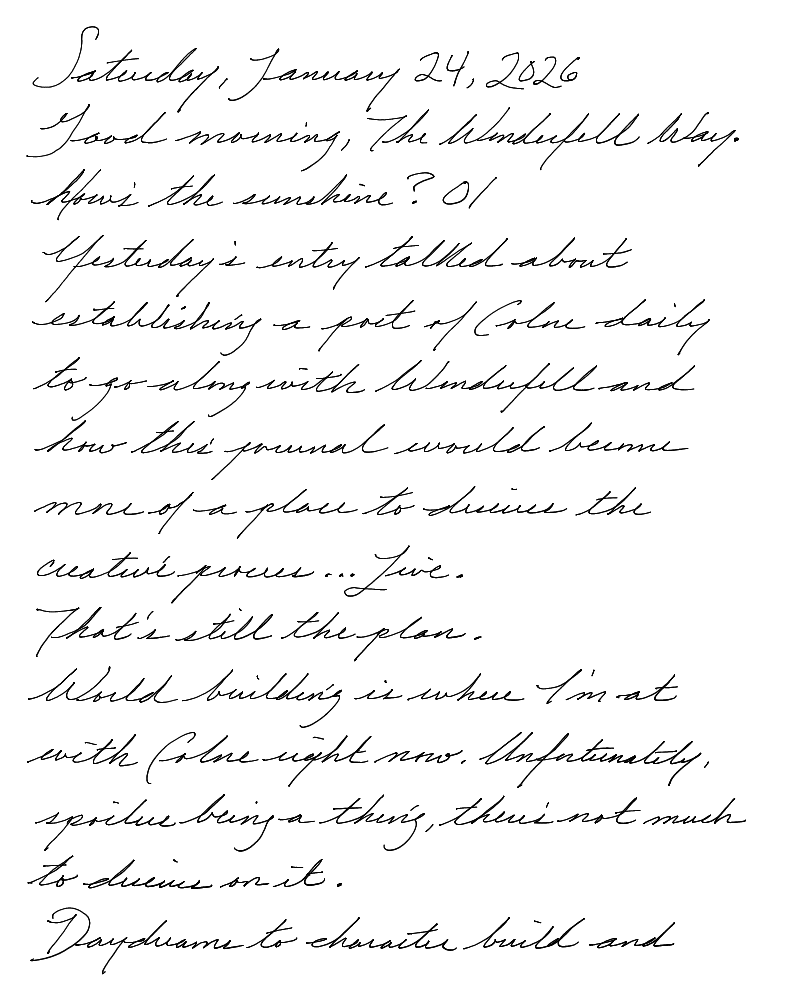 Saturday, January 24, 2026
Good morning, The Wonderfell Way.
How's the sunshine? 01
Yesterday's entry talked about
establishing a post of Colne daily
to go along with Wonderfell and
how this journal would become
more of a place to discuss the
creative process... Live.
That's still the plan.
World building is where I'm at
with Colne right now. Unfortunately,
spoilers being a thing, there's not much
to discuss on it.
Daydreams to character build and